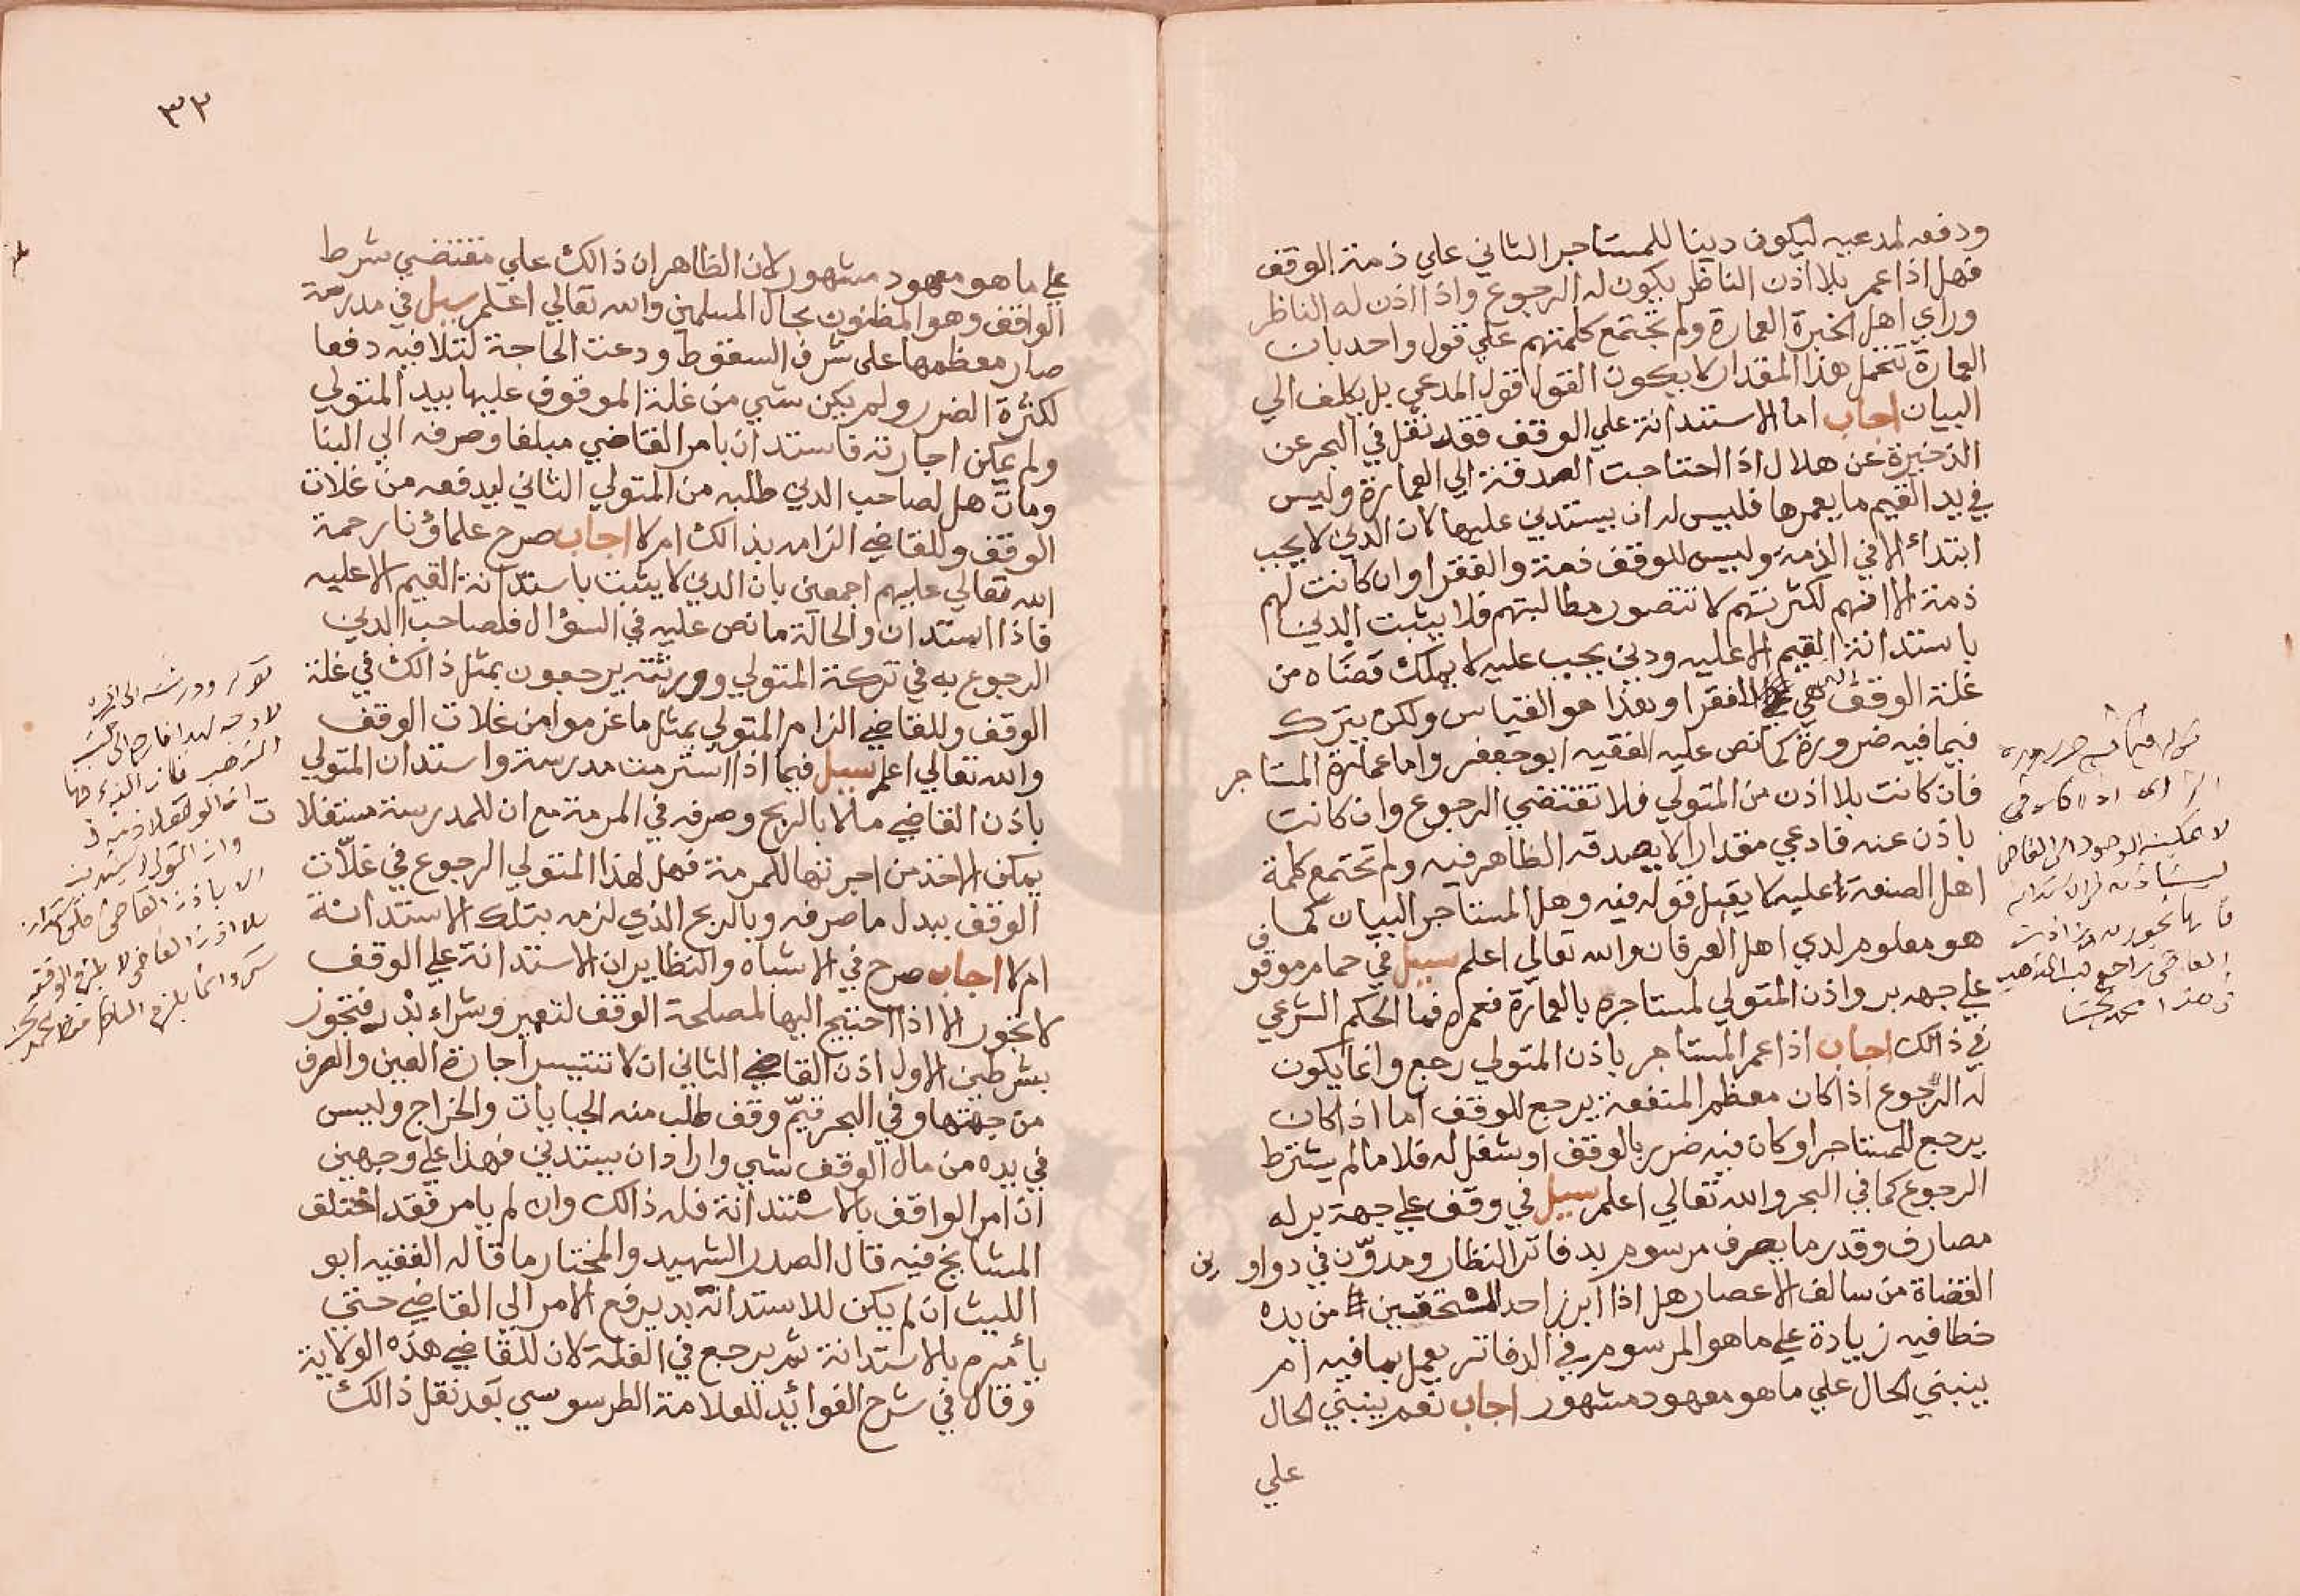 ودفعه لمدعيه ليكون دينا للمستاجر الثاني علي ذمة الوقف
فهل اذا عمر بلا اذن الناظر يكون له الرجوع واذا اذن له الناظر
وراي اهل الخبرة العمارة ولم تجتمع كلمتهم علي قول واحد بان
العمارة تتحمل هذا المقدار لا يكون القول قول المدعي بل يكلف الي
البيان اجاب اما الاستدانة علي الوقف فقد نقل في البحر عن
الذخيرة عن هلال اذا احتاجت الصدقة الي العمارة وليس
في يد القيم ما يعمرها فليس له ان يستدين عليها لان الدين لا يجب
ابتداء الا في الذمة وليس للوقف ذمة والفقرا وان كانت لهم
ذمة الا انهم لكثرتهم لا تتصور مطالبتهم فلا يثبت الدين
باستدانة القيم الا عليه ودين يجب عليه لا يملك قضاه من
غلة الوقف التي هي للفقرا وهذا هو القياس ولكن يترك
فيما فيه ضرورة كما نص عليه الفقيه ابو جعفر واما عمارة المستاجر
فان كانت بلا اذن من المتولي فلا تقتضي الرجوع وان كانت
باذن عنه فادعي مقدارا لا يصدقه الظاهر فيه ولم تجتمع كلمة
اهل الصنعة عليه لا يقبل قوله فيه وهل المستاجر البيان كما
هو معلوم لدي اهل العرفان والله تعالي اعلم سيل في حمام موقوف
علي جهه بر واذن المتولي لمستاجره بالعمارة فعمره فما الحكم الشرعي
في ذالك اجاب اذا عمر المستاجر باذن المتولي رجع وانما يكون
له الرجوع اذا كان معظم المنفعة يرجع للوقف اما اذا كان
يرجع للمستاجر او كان فيه ضرر بالوقف او شغل له فلا ما لم يشترط
الرجوع كما في البحر والله تعالي اعلم سيل في وقف علي جهة بر له
مصارف وقدر ما يصرف مرسوم بدفاتر النظار ومدوّن في دواوين
القضاة من سالف الاعصار هل اذا ابرز احد المستحقين من يده
خطا فيه زيادة علي ما هو المرسوم في الدفاتر يعمل بما فيه ام
ينبني الحال علي ما هو معهود مشهور اجاب نعم ينبني الحال
علي
٣٣
علي ما هو معهود مشهور لان الظاهر ان ذالك علي مقتضي شرط
الواقف وهو المظنون بحال المسلمين والله تعالي اعلم سيل في مدرسة
صار معظمها على شرف السقوط ودعت الحاجة لتلافيه دفعا
لكثرة الضرر ولم يكن شي من غلة الموقوف عليها بيد المتولي
ولم يمكن اجارته فاستدان بامر القاضي مبلغا وصرفه الي البنا
ومات هل لصاحب الدين طلبه من المتولي الثاني ليدفعه من غلات
الوقف وللقاضي الزامه بذالك ام لا اجاب صرح علماؤنا رحمة
الله تعالي عليهم اجمعين بان الدين لا يثبت باستدانة القيم الا عليه
فاذا استدان والحالة ما نص عليه في السؤال فلصاحب الدين
الرجوع به في تركة المتولي وورثته يرجعون بمثل ذالك في غلة
الوقف وللقاضي الزام المتولي بمثل ما غرموا من غلات الوقف
والله تعالي اعلم سيل فيما اذا استرمت مدرسة واستدان المتولي
باذن القاضي مالا بالربح وصرفه في المرمة مع ان للمدرسة مستغلا
يمكن الاخذ من اجرتها للمرمة فهل لهذا المتولي الرجوع في غلّات
الوقف ببدل ما صرفه وبالربح الذي لزمه بتلك الاستدانة
ام لا اجاب صرح في الاشباه والنظاير ان الاستدانة علي الوقف
لا تجوز الا اذا احتيج اليها لمصلحة الوقف لتعمير وشراء بذر فتجوز
بشرطين الاول اذن القاضي الثاني ان لا تتيسر اجارة العين والصرف
من جهتها وفي البحر قيّم وقف طلب منه الجبايات والخراج وليس
في يده من مال الوقف شي واراد ان يستدين فهذا علي وجهين
ان امر الواقف بالاستدانة فله ذالك وان لم يامر فقد اختلف
المشايخ فيه قال الصدر الشهيد والمختار ما قاله الفقيه ابو
الليث ان لم يكن للاستدانة بد يرفع الامر الي القاضي حتي
يأمره بالاستدانة ثم يرجع في الغلة لان للقاضي هذه الولاية
وقال في شرح الفوائد للعلامة الطرسوسي بعد نقل ذالك